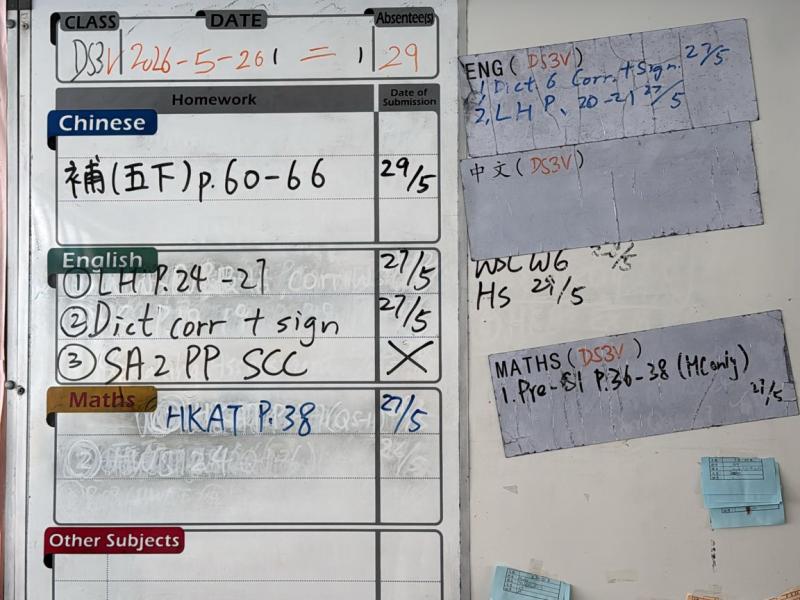 CLASS DATE Absentee(s)
DS3V 2026-5-26 1 = 1 29
Homework Date of Submission
Chinese
補(五下)p.60-66 29/5
English
① LH P.24-27 27/5
② Dict corr + sign 27/5
③ SA2 PP SCC X
Maths
HKAT P.38 27/5
Other Subjects
ENG (DS3V)
1, Dict. 6 Corr. + Sign. 27/5
2, LH P. 20-21 27/5
中文(DS3V)
WSC W6
HS 29/5
MATHS (DS3V)
1. Pre-S1 P.36-38 (MC only)
27/5